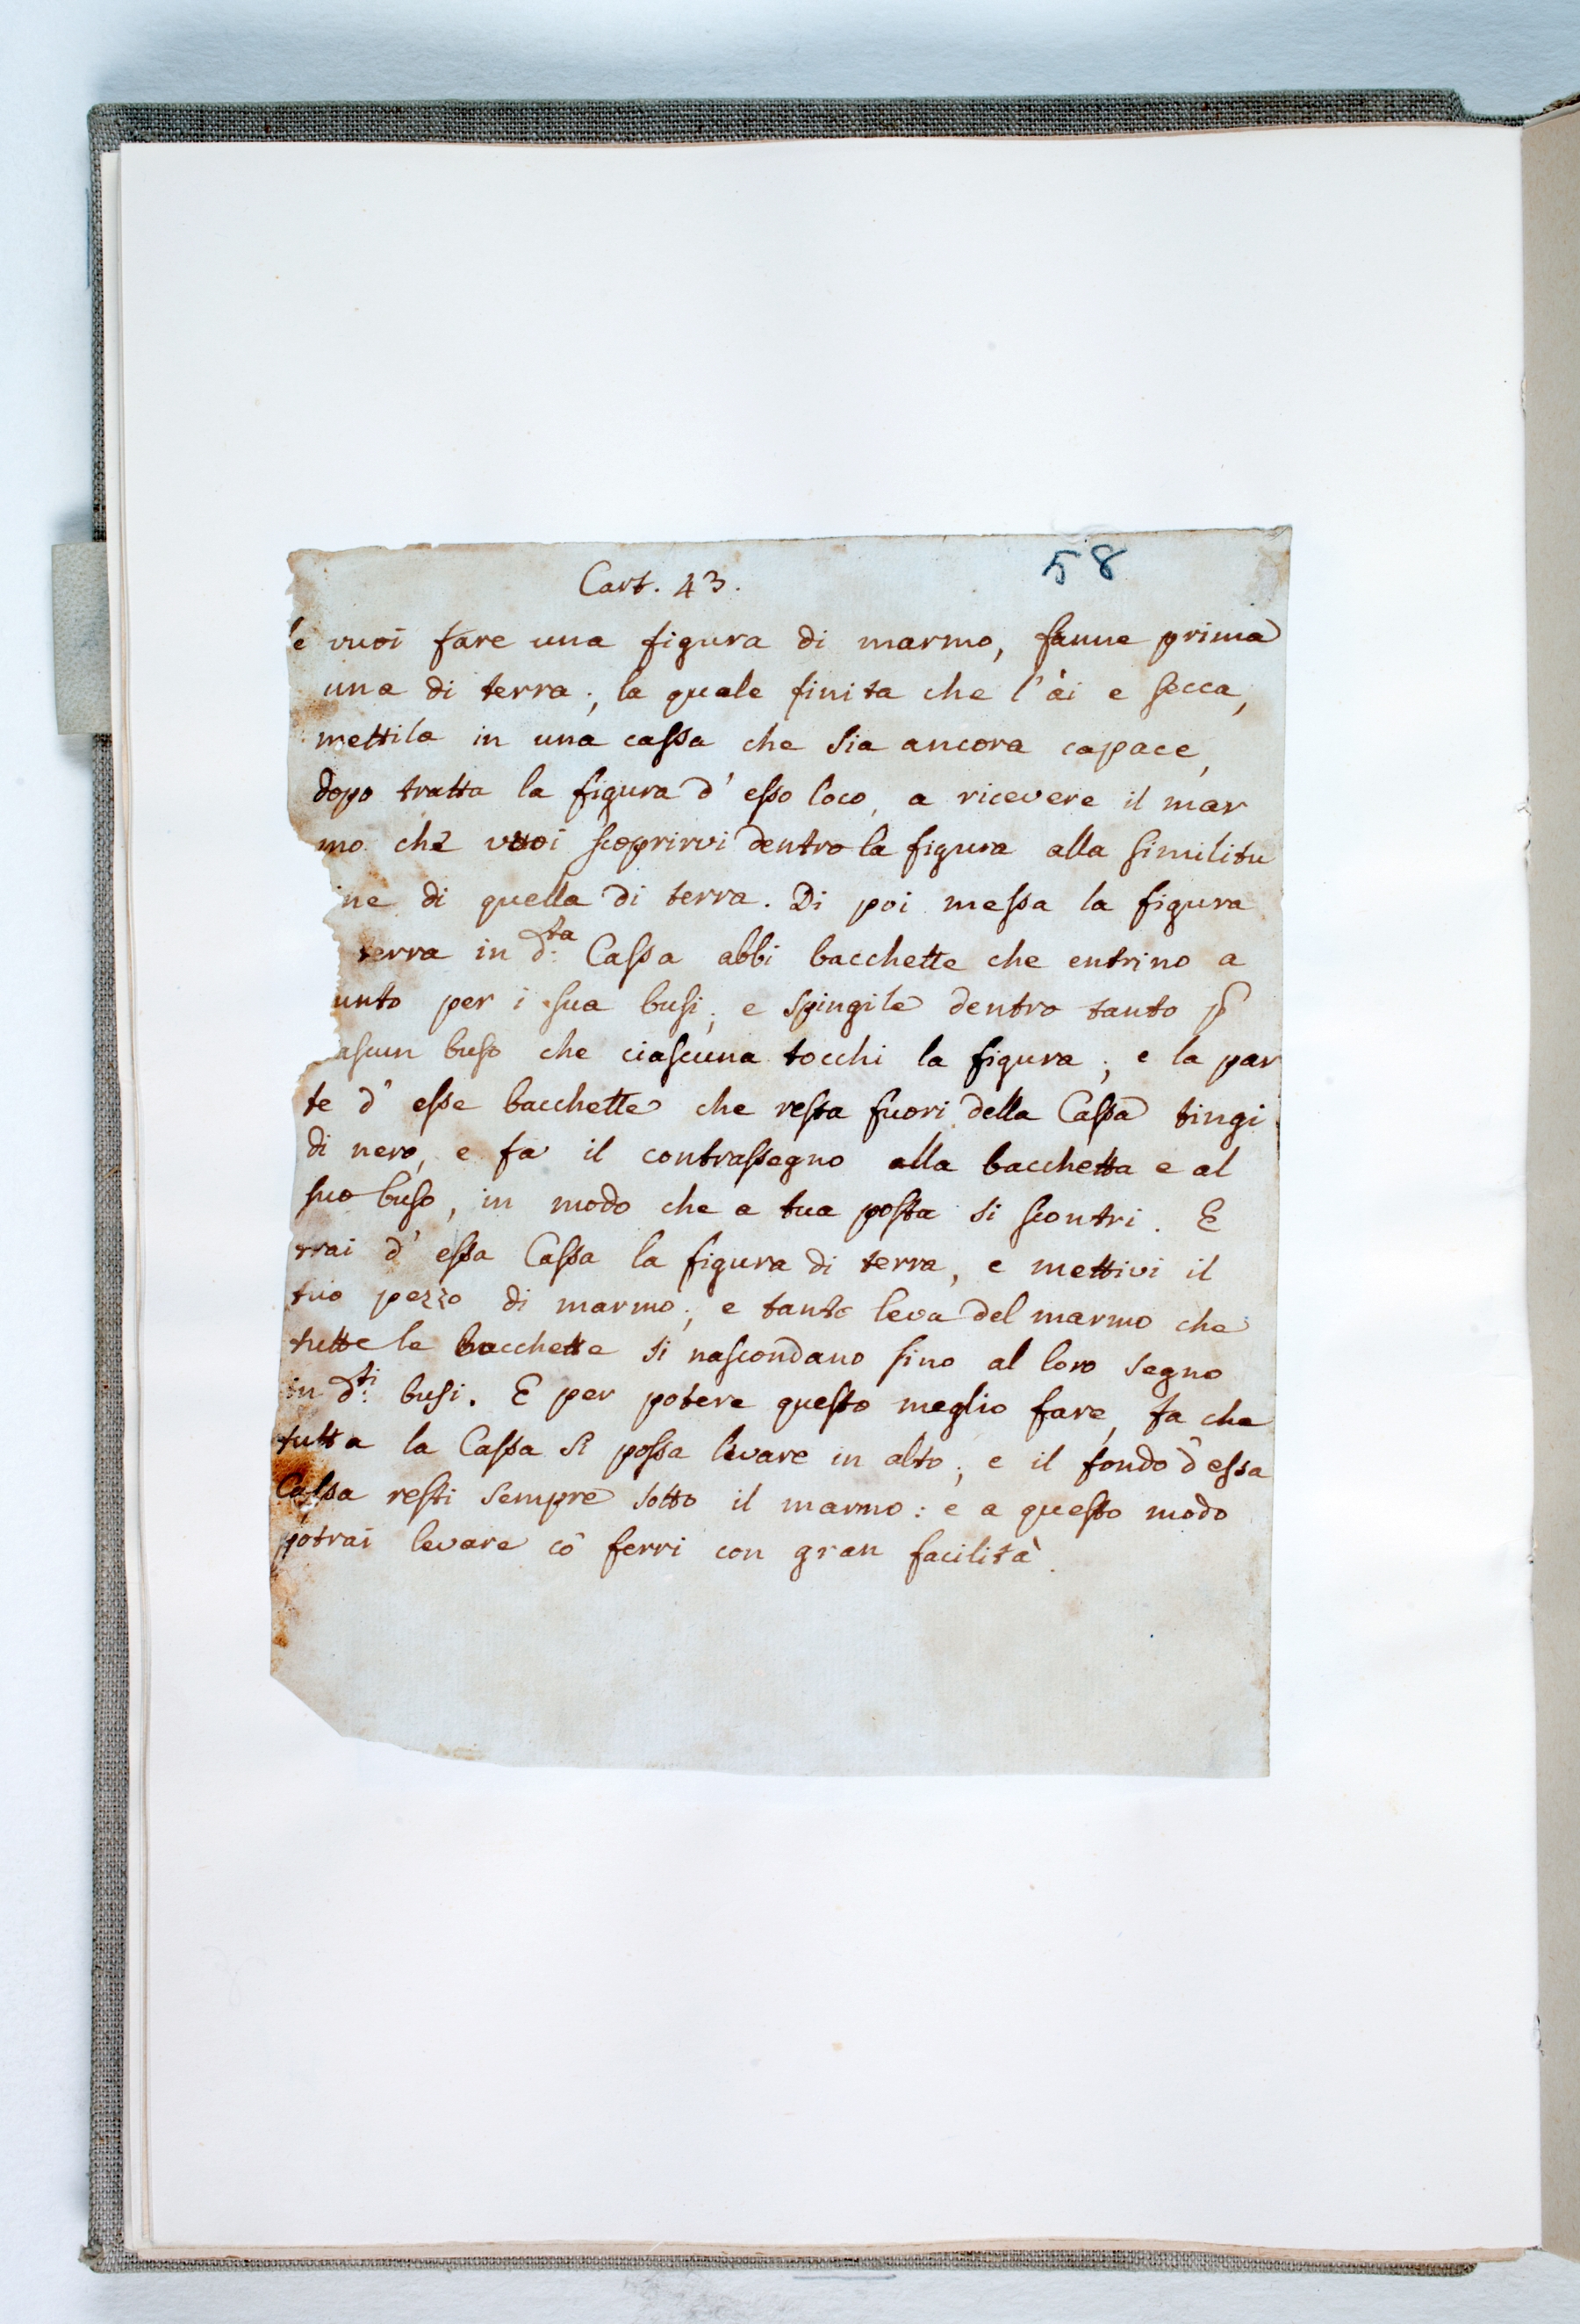 Cart. 43.
58
e vuoi fare una figura di marmo, fanne prima
una di terra; la quale finita che l'ài e secca,
mettila in una cassa che sia ancora capace,
dopo tratta la figura d'esso loco, a ricevere il mar
mo che vuoi scoprirvi dentro la figura alla similitu
ine di quella di terra. Di poi messa la figura
terra in d:ta Cassa abbi bacchette che entrino a
unto per i sua busi; e spingile dentro tanto p
ascun buso che ciascuna tocchi la figura; e la par
te d'esse bacchette che resta fuori della Cassa tingi
di nero, e fa il contrassegno alla bacchetta e al
suo buso, in modo che a tua posta si scontri. E
trai d'essa Cassa la figura di terra, e mettivi il
tuo pezzo di marmo; e tanto leva del marmo che
tutte le bacchette si nascondano fino al loro segno
in d:ti busi. E per potere questo meglio fare, fa che
tutta la Cassa si possa levare in alto; e il fondo d'essa
Cassa resti sempre sotto il marmo: e a questo modo
potrai levare cò ferri con gran facilità.